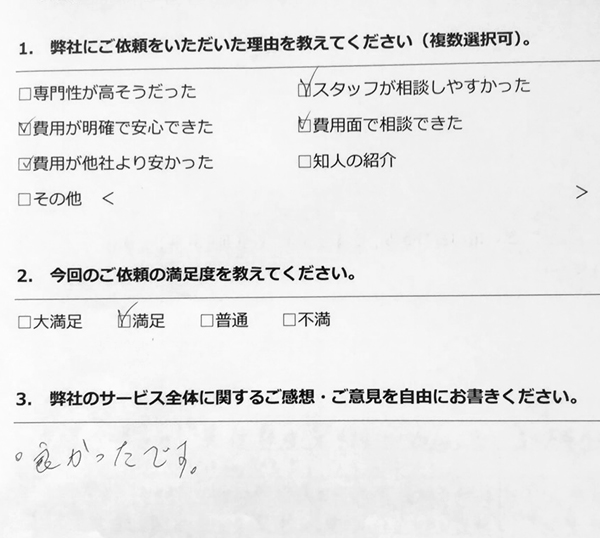 1. 弊社にご依頼をいただいた理由を教えてください（複数選択可）。
□専門性が高そうだった ☑スタッフが相談しやすかった
☑費用が明確で安心できた ☑費用面で相談できた
☑費用が他社より安かった □知人の紹介
□その他 < >
2. 今回のご依頼の満足度を教えてください。
□大満足 ☑満足 □普通 □不満
3. 弊社のサービス全体に関するご感想・ご意見を自由にお書きください。
。良かったです。